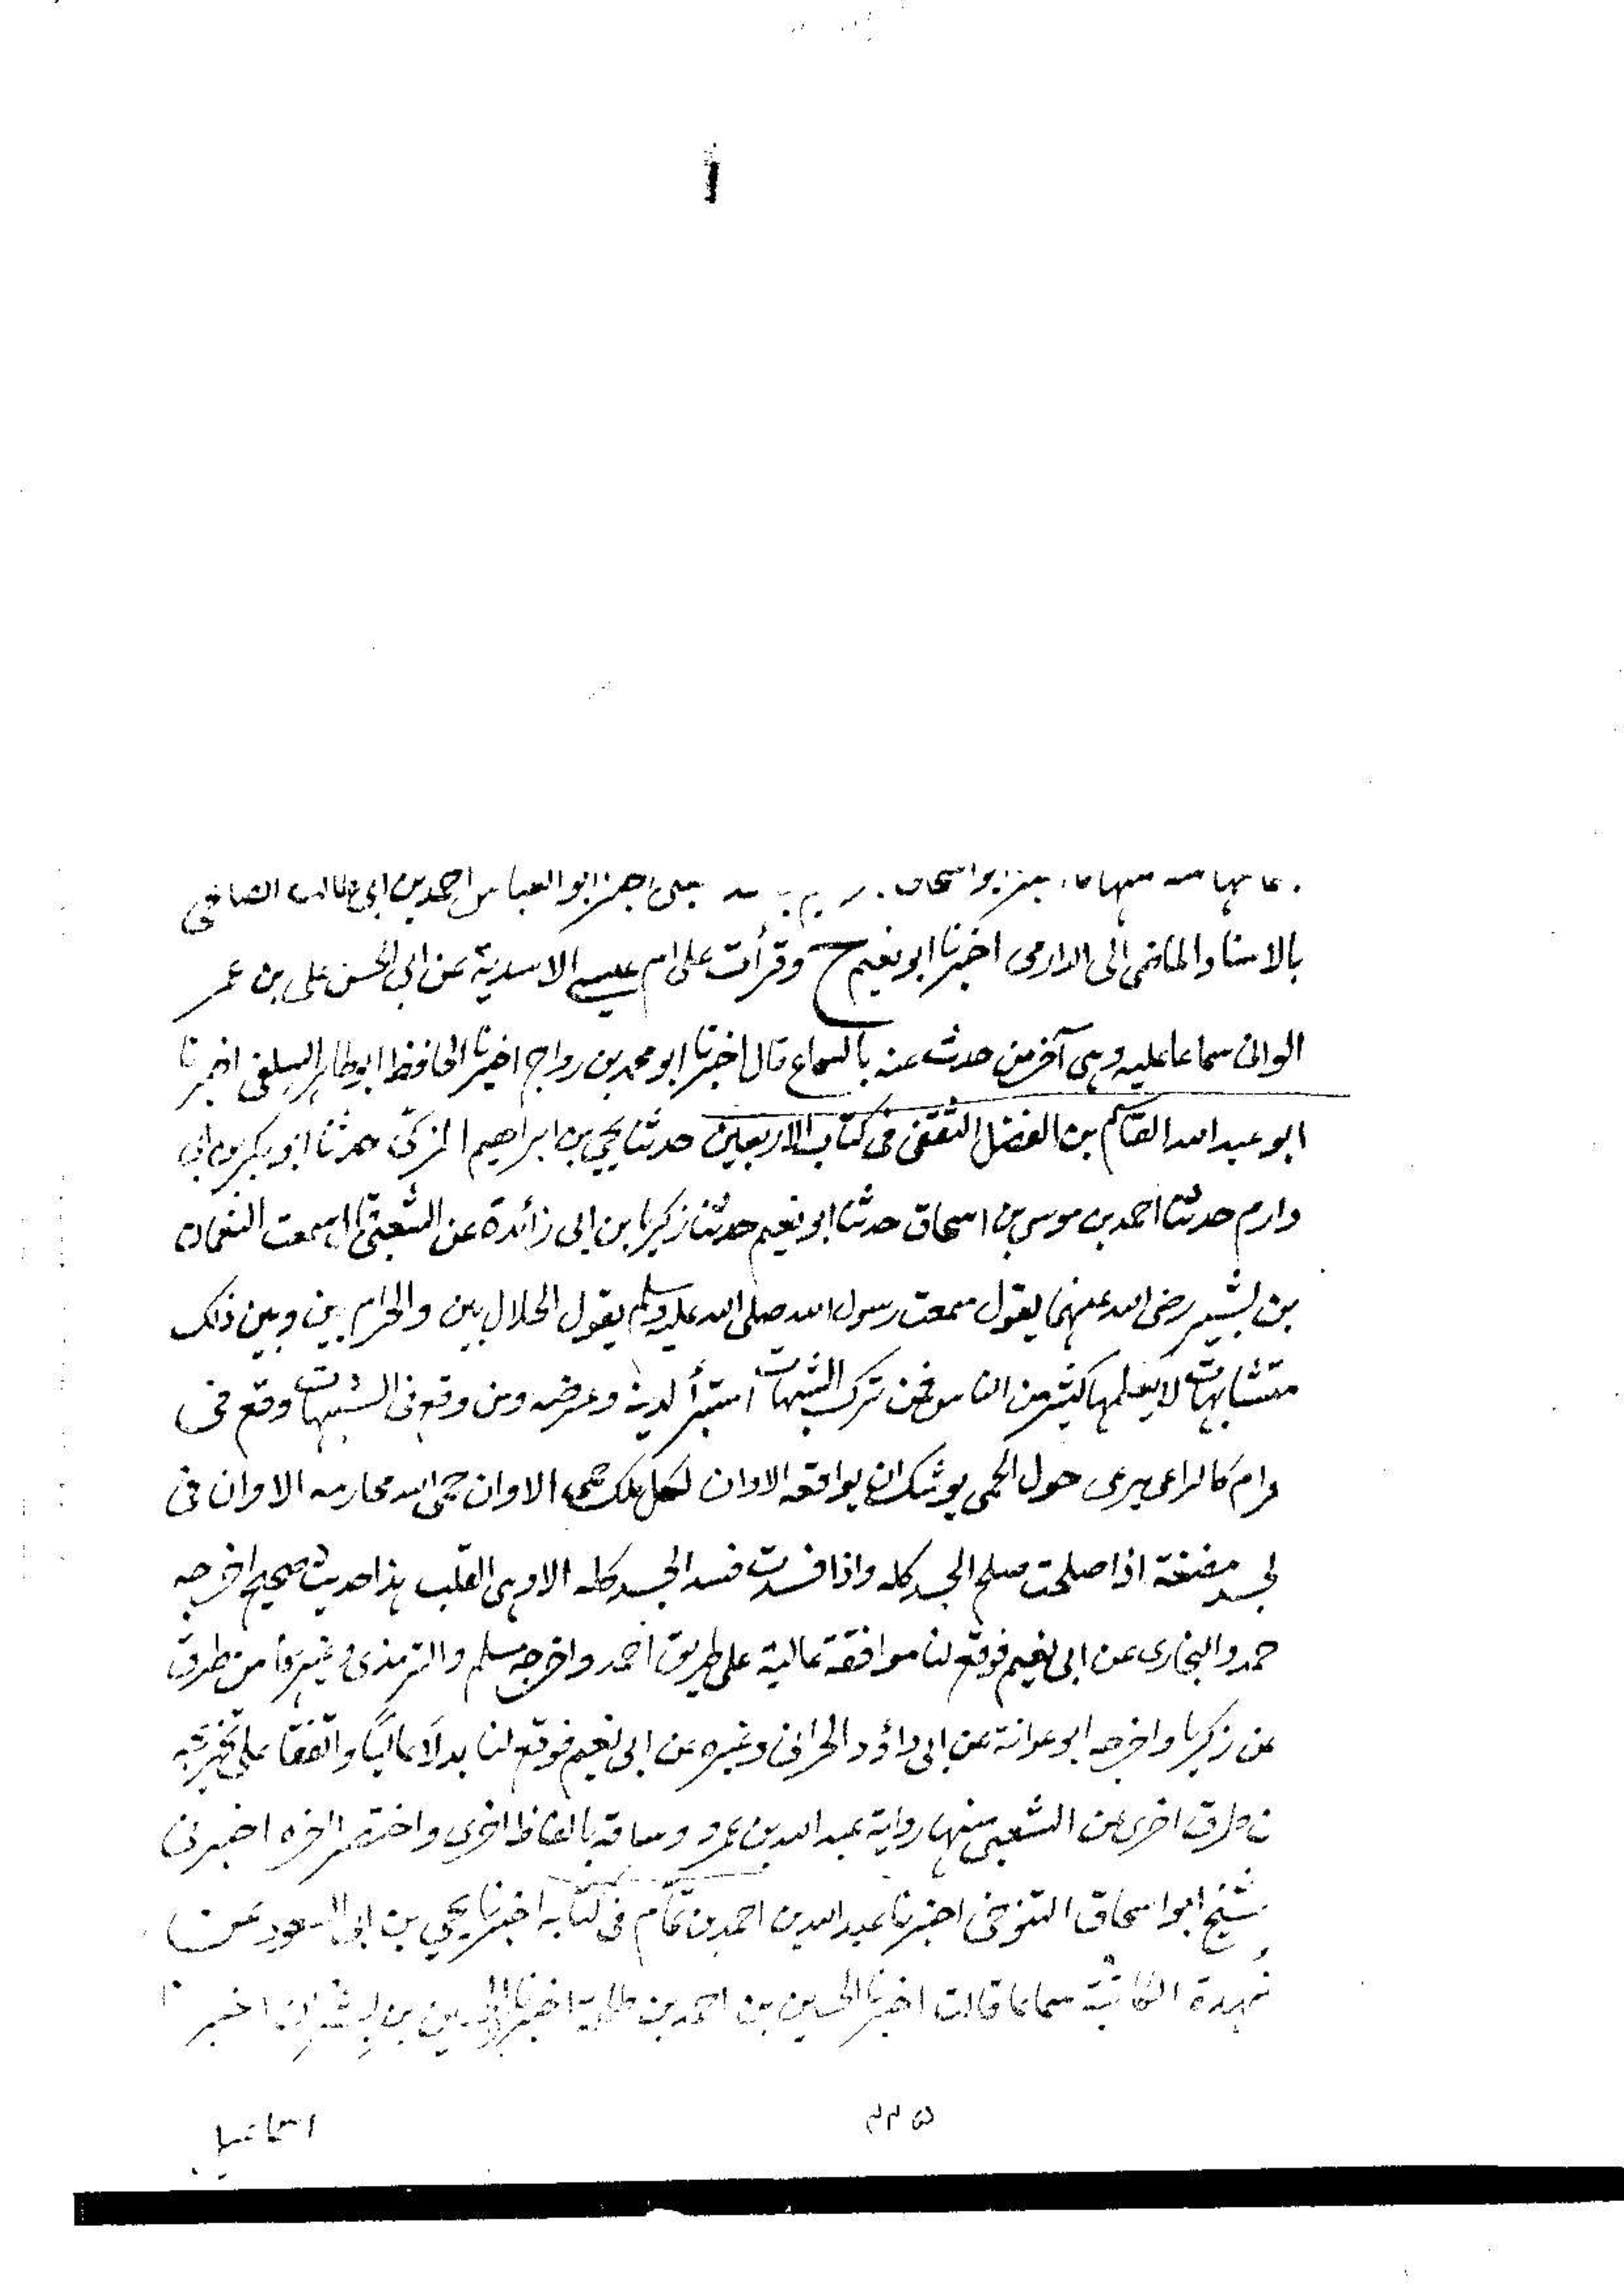 ابو العباس احمد بن ابى طالب الصالحى
بالاسناد الماضى الى الدارمى اخبرنا ابو نعيم ح وقرأت على ام عيسى الاسدية عن ابى الحسن على بن عمر
الوانى سماعا عليه وهى آخر من حدث عنه بالسماع قال اخبرنا ابو محمد بن رواج اخبرنا الحافظ ابو طاهر السلفى اخبرنا
ابو عبد الله القاسم بن الفضل الثقفى فى كتاب الاربعين حدثنا يحيى بن ابراهيم المزكى حدثنا ابو بكر بن ابى
دارم حدثنا احمد بن موسى بن اسحاق حدثنا ابو نعيم حدثنا زكريا بن ابى زائدة عن الشعبى قال سمعت النعمان
بن بشير رضى الله عنهما يقول سمعت رسول الله صلى الله عليه وسلم يقول الحلال بين والحرام بين وبين ذلك
متشابهات لا يعلمها كثير من الناس فمن ترك الشبهات استبرأ لدينه وعرضه ومن وقع فى الشبهات وقع فى
رام كالراعى يرعى حول الحمى يوشك ان يواقعه الا وان لكل ملك حمى الا وان حمى الله محارمه الا وان فى
لجسد مضغة اذا صلحت صلح الجسد كله واذا فسدت فسد الجسد كله الا وهى القلب هذا حديث صحيح اخرجه
حمد والبخارى عن ابى نعيم فوقع لنا موافقة عالية على طريق احمد واخرجه مسلم والترمذى وغيرهما من طرق
عن زكريا واخرجه ابو عوانة عن ابى داؤد الحرانى وغيره عن ابى نعيم فوقع لنا بدلاً عالياً واتفقا على تخريجه
ن طرق اخرى عن الشعبى منها رواية عبد الله بن عمرو وساقه بالفاظ اخرى واختصر آخره اخبرنى
شيخ ابو اسحاق التنوخى اخبرنا عبد الله بن احمد بن تمام فى كتابه اخبرنا يحيى بن ابى السعود عن
شهدة الكاتبة سماعا قالت اخبرنا الحسين بن احمد بن طلحة اخبرنا ابو الحسين بن بشران اخبرنا
اسماعيل